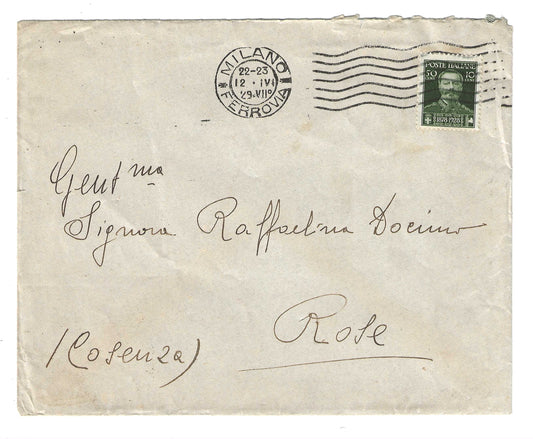 MILANO
22-23
12 · IV
29·VII°
FERROVIA
POSTE ITALIANE
50 10
1878 1928
Gent ma
Signora Raffaelina Docimo
Rose
(Cosenza)